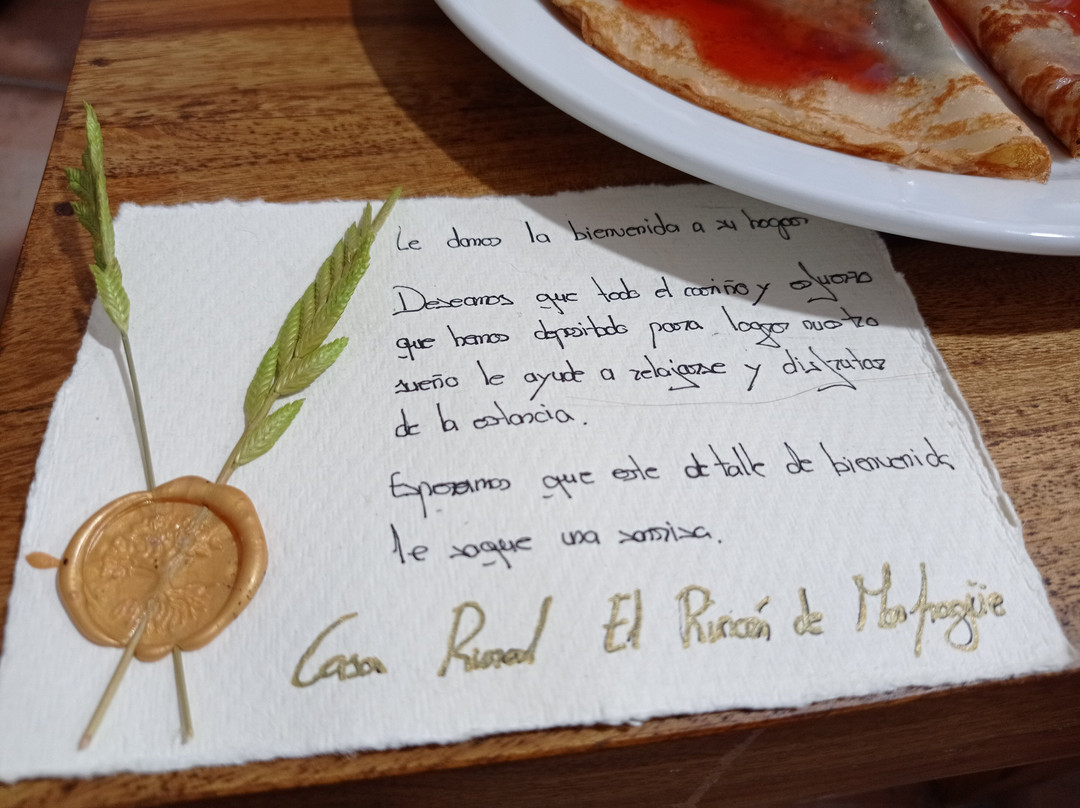 Le damos la bienvenida a su hogar
Deseamos que todo el cariño y esfuerzo
que hemos depositado para lograr nuestro
sueño le ayude a relajarse y disfrutar
de la estancia.
Esperamos que este detalle de bienvenida
le saque una sonrisa.
Casa Rural El Rincón de Monfragüe